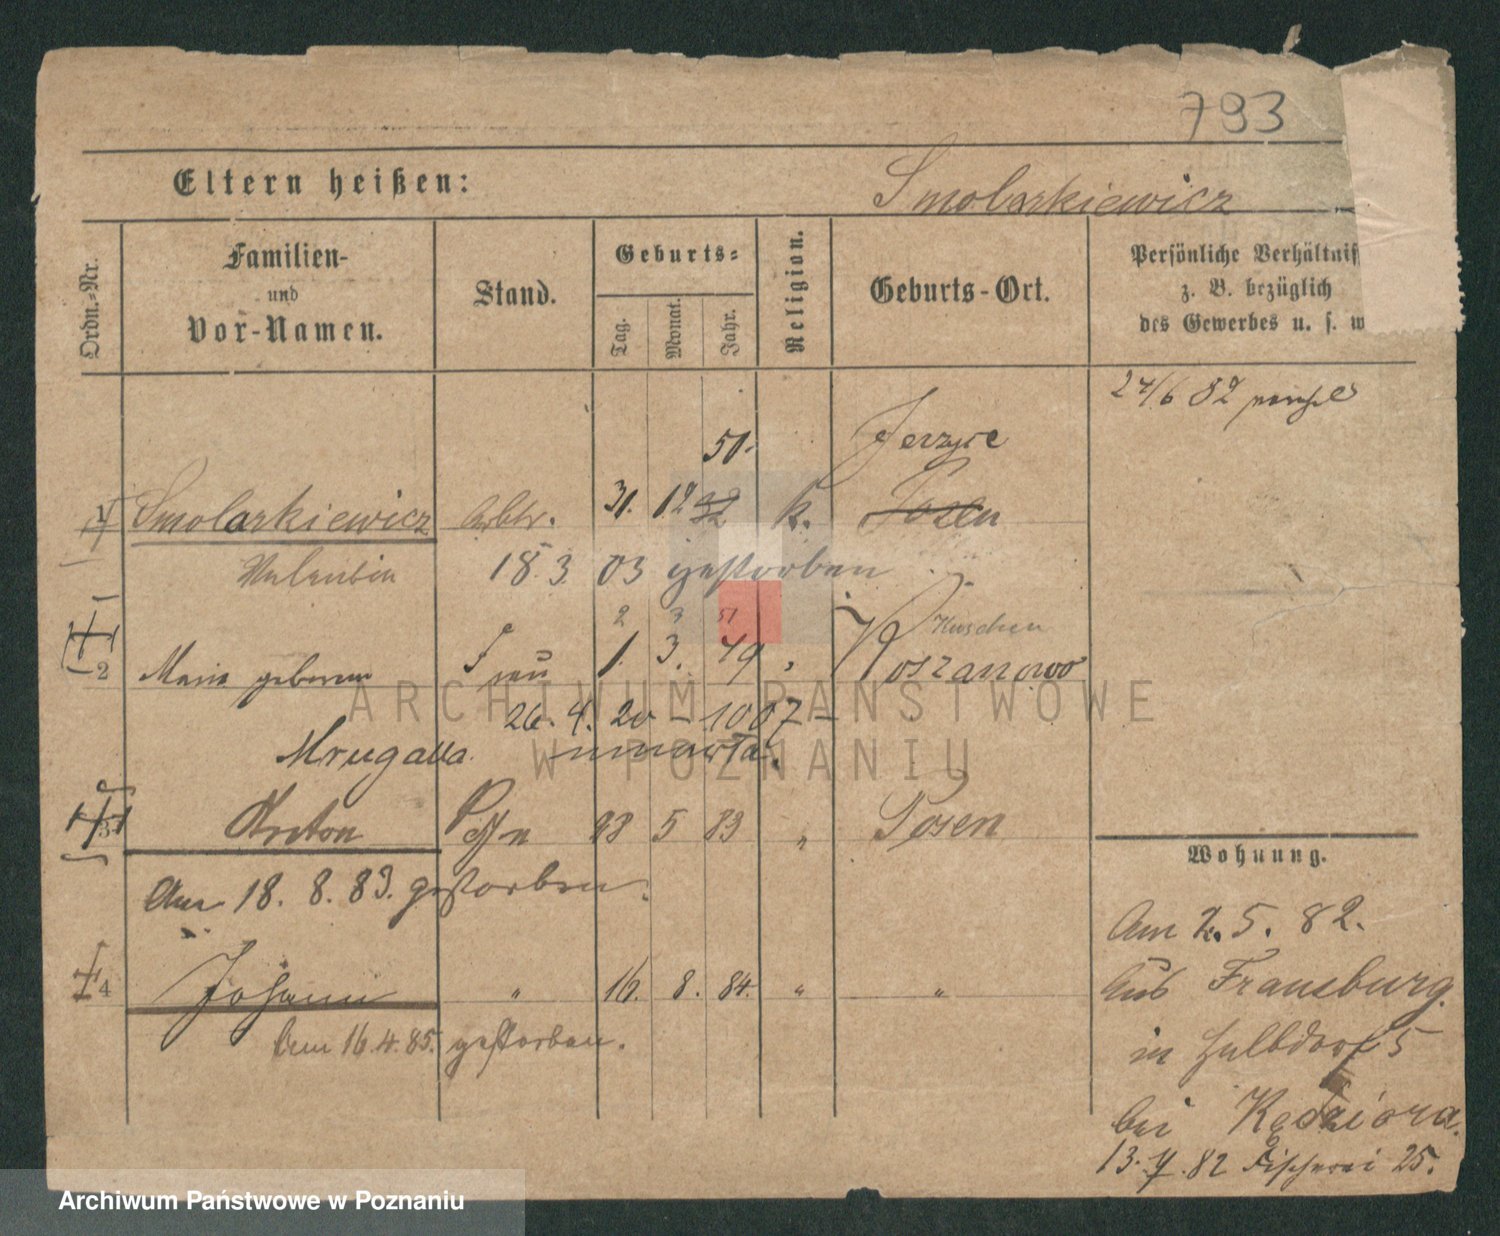 793
Eltern heißen:
Smolarkiewicz
Ordn.=Nr.
Familien-
und
Vor-Namen.
Stand.
Geburts=
Tag.
Monat.
Jahr.
Religion.
Geburts-Ort.
Persönliche Verhältnis
z. B. bezüglich
des Gewerbes u. s. w
24/6 82
50. Jerzyce
1 Smolarkiewicz Arbtr. 31. 12 k. Posen
Valentin 18. 3. 03 gestorben
2 3 51 Kuschen
2 Maria geborene Frau 1. 3. 49 " Koszanowo
26. 4. 20 - 1007 -
Mrugalla. umarta.
3 Anton 5 83 " Posen
Am 18. 8. 83. gestorben.
4 Johann " 16. 8. 84. " "
Am 16.4.85. gestorben.
Wohnung.
Am 2. 5. 82.
Aus Frausburg.
in Halbdorf 5
bei Kędziora.
13. 7. 82 Fischerei 25.
ARCHIWUM PAŃSTWOWE
W POZNANIU
Archiwum Państwowe w Poznaniu